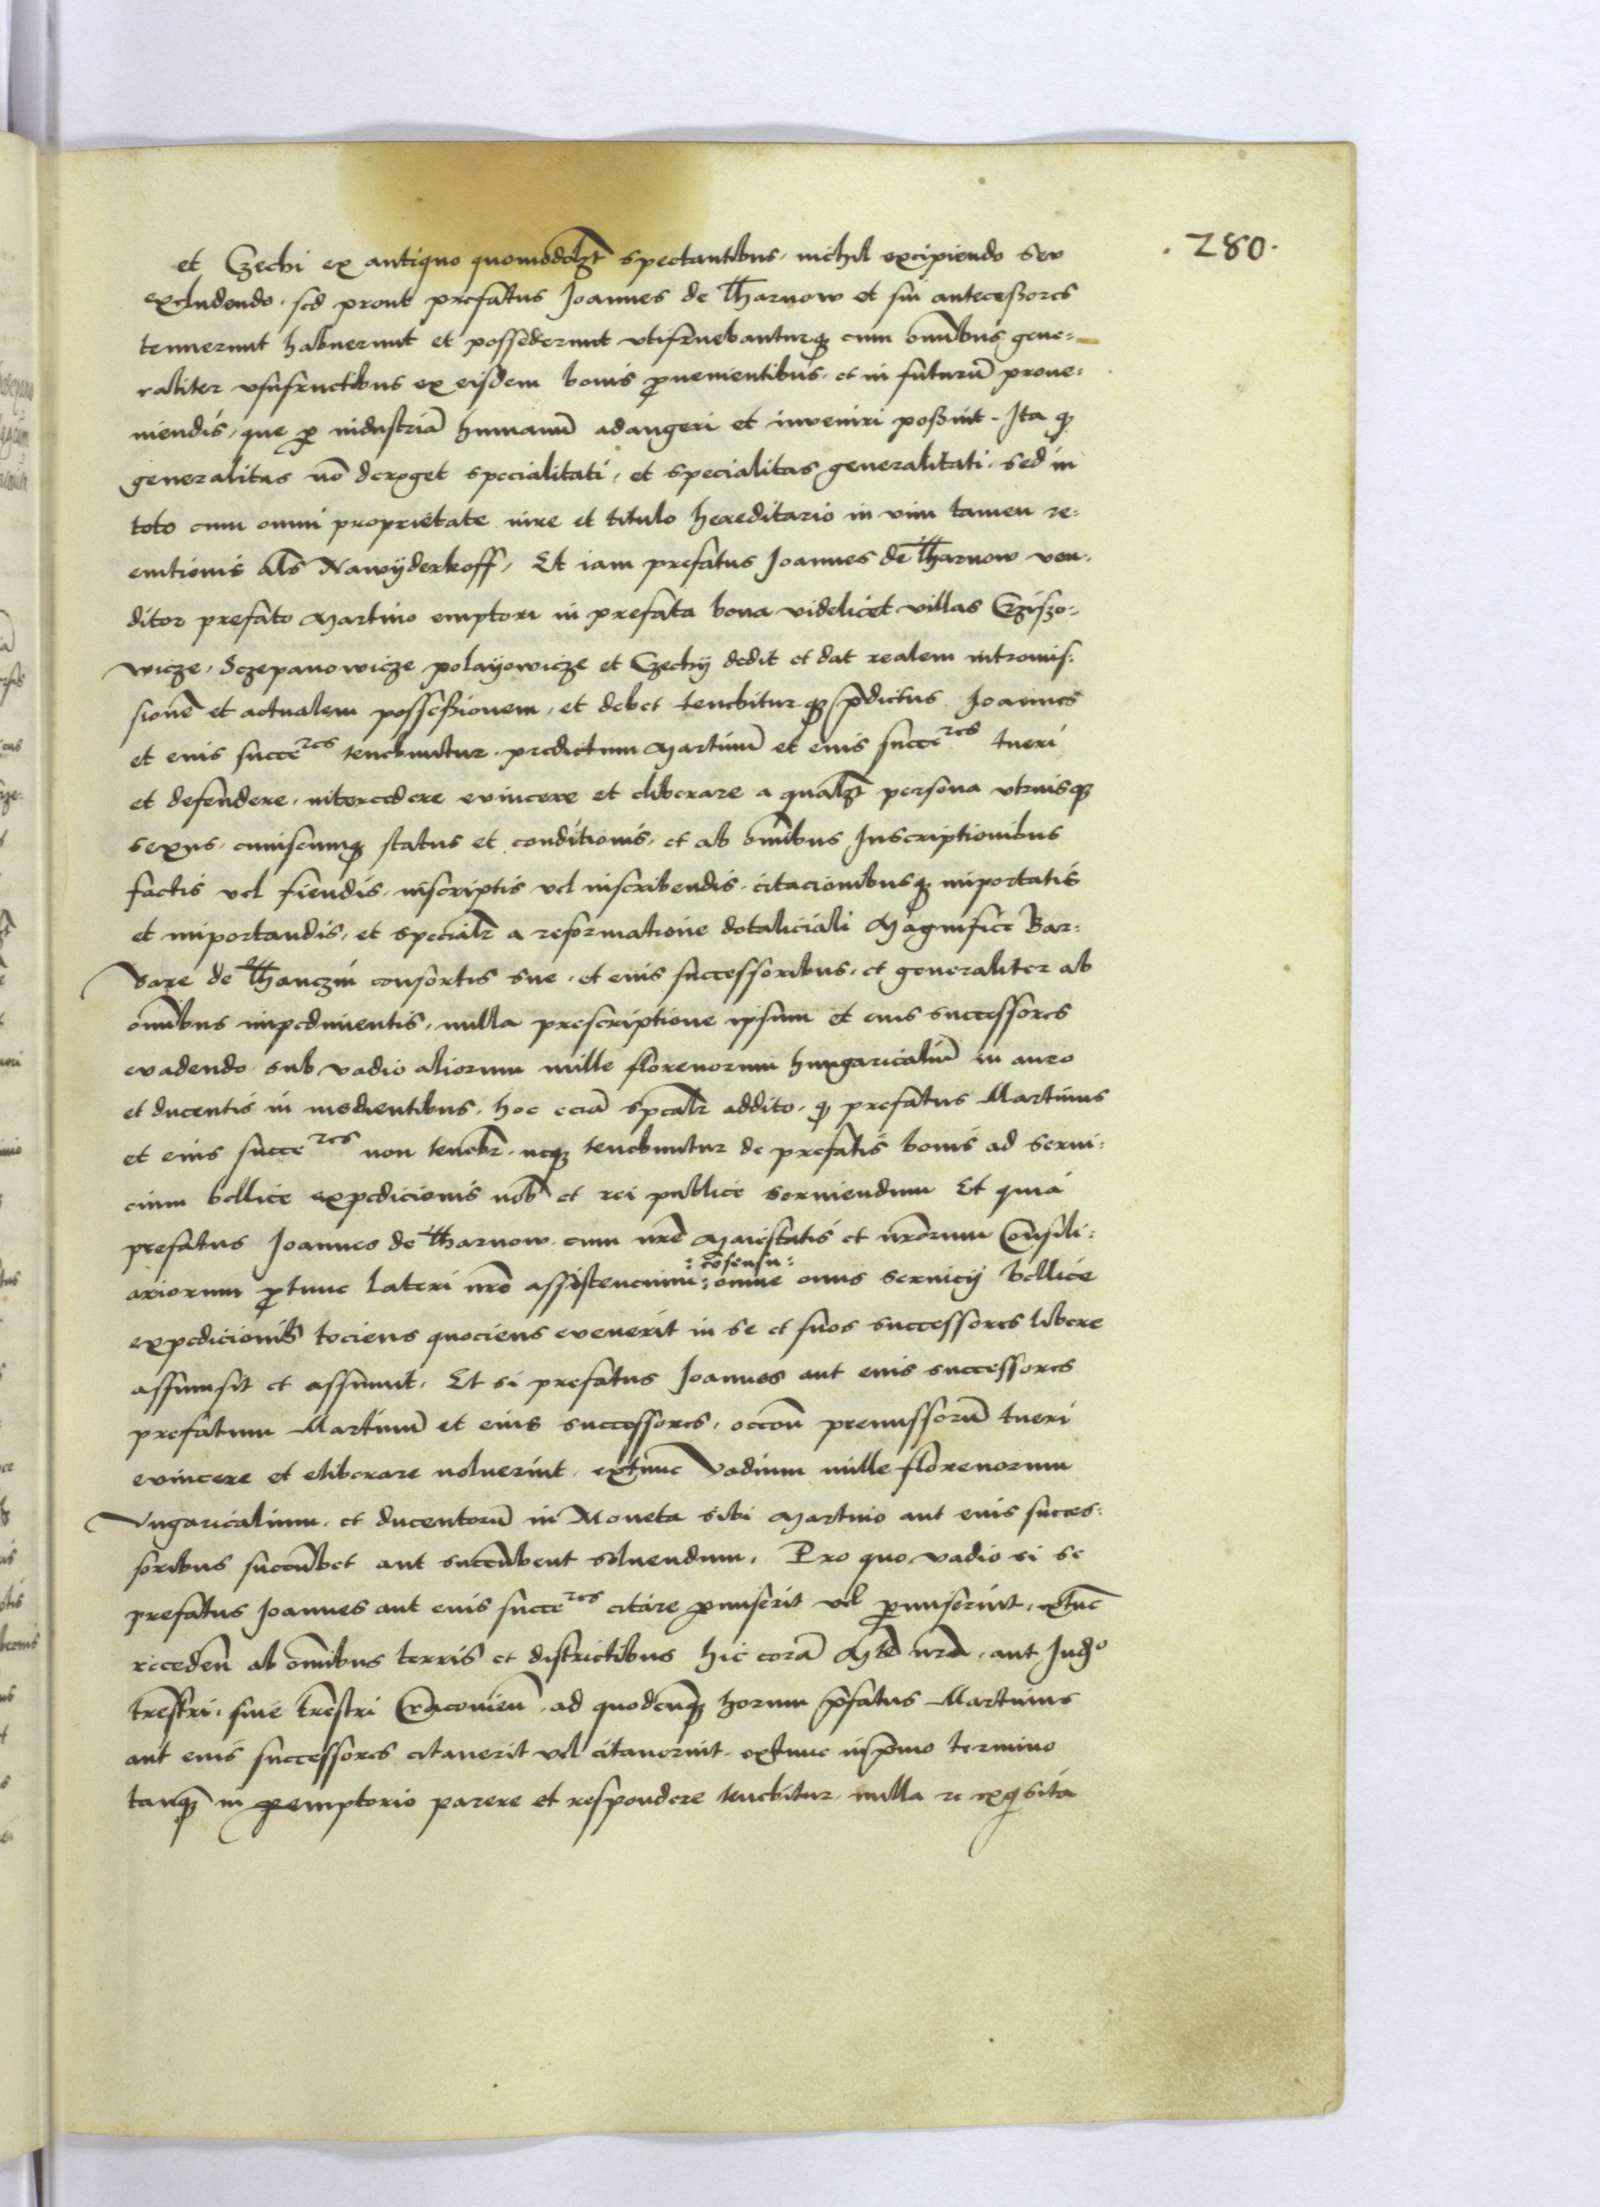 . 280 .
et Czechi ex antiquo quomodolꝫt spectantibus, nichil excipiendo seu
excludendo, sed prout prefatus Joannes de Tharnow et sui antecessores
tenuerunt habuerunt et possederunt vtifruebanturqꝫ cum om̅ibus gene-
raliter vsufructibus ex eisdem bonis ꝓuenientibus, et in futurū proue-
niendis, que ꝑ industriā humanā adaugeri et inveniri possint. Ita ꝙ
generalitas nō deroget specialitati, et specialitas generalitati, sed in
toto cum omni proprietate iure et titulo hereditario in vim tamen re-
emtionis al̅s Nawyderkoff, Et iam prefatus Joannes de Tharnow ven-
ditor prefato Martino emptori in prefata bona videlicet villas Czisszo-
wicze, Sczepanowicze polayowicze et Czechy dedit et dat realem intromis-
sionē et actualem possessionem, et debet tenebiturqꝫ p̄dictus Joannes
et eius succeres tenebuntur predictum Martinū et eius succeres tueri
et defendere, intercedere evincere et eliberare a qualꝫt persona vtriusqꝫ
sexus, cuiuscunqꝫ status et conditionis, et ab om̅ibus Inscriptionibus
factis vel fiendis, inscriptis vel inscribendis, citacionibusqꝫ importatis
et importandis, et specialr̅ a reformatione dotaliciali Magnifice Bar-
bare de Thanczin consortis sue, et eius successoribus, et generaliter ab
om̅ibus impedimentis, nulla prescriptione ipsum et eius successores
evadendo sub vadio aliorum mille florenorum hungaricaliū in auro
et ducentis in medientibus, hoc eciā sp̅calr̅ addito, ꝙ prefatus Martinus
et eius succeres non tenebr̅, neqꝫ tenebuntur de prefatis bonis ad serui-
cium bellice expedicionis nob̅ et rei publice seruiendum Et quia
prefatus Joannes de Tharnow cum nr̅e Maiestatis et nr̅orum Consili-
ariorum ꝓtunc lateri nr̅o assistencium :cōsensu: omne onus seruicij bellice
expedicionis tociens quociens evenerit in se et suos successores libere
assumsit et assumit, Et si prefatus Joannes aut eius successores
prefatum Martinū et eius successores, occōn̅ premissorū tueri
evincere et eliberare noluerint, extunc Vadium mille florenorum
Vngaricalium, et ducentorū in Moneta sibi Martino aut eius succes-
soribus succūbet aut succūbent soluendum, Pro quo vadio si se
prefatus Joannes aut eius succeres citare ꝑmiserit vel ꝑmiserint, extūc
receden̅ ab om̅ibus terris et districtibus hic corā Mte̅ nr̅a, aut Judo
tr̅estri, siue tr̅estri Cracouien̅, ad quodcūqꝫ horum p̄fatus Martinus
aut eius successores citauerit vel citauerint, extunc in p̄mo termino
tanqꝫ in peremptorio parere et respondere tenebitur nulla re exqisita